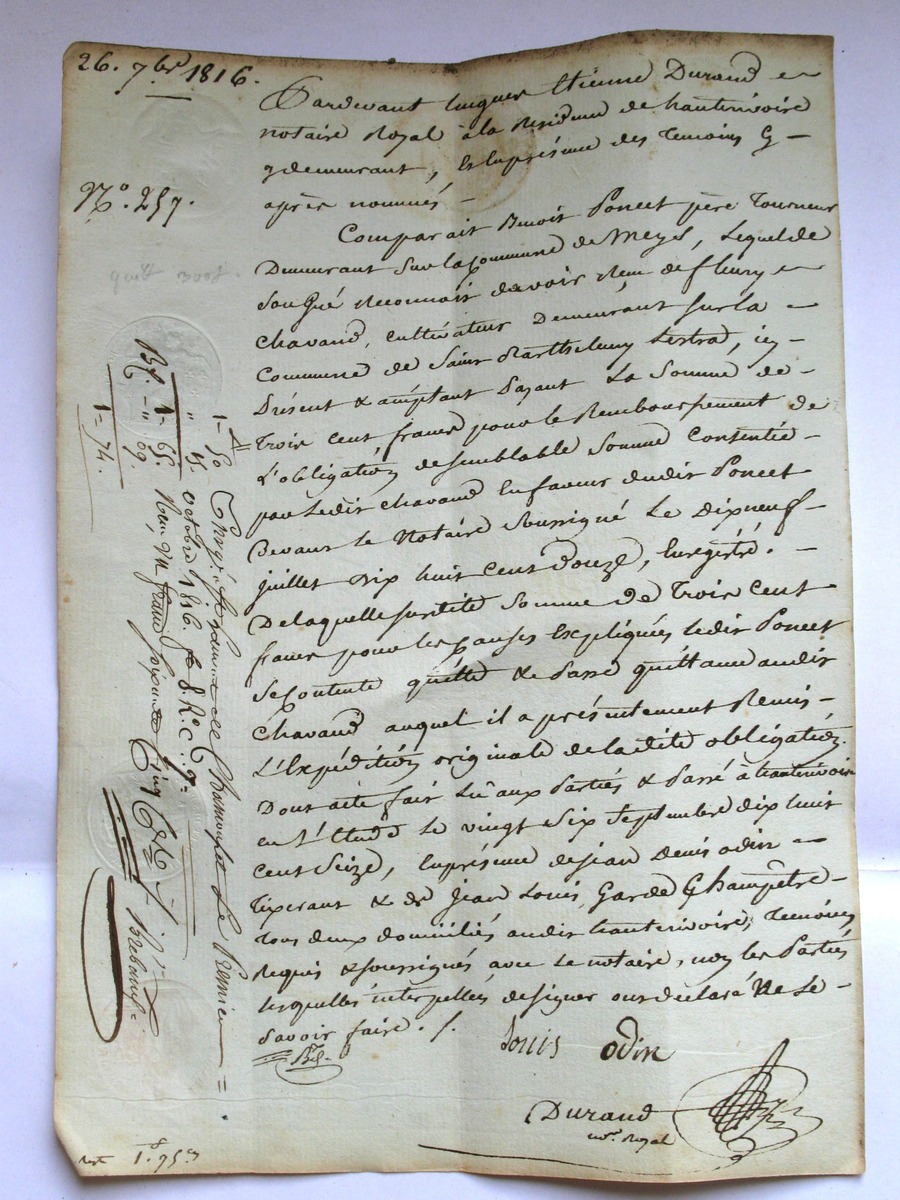 26. 7bre 1816.
N.° 257.
quitt 300f.
Pardevant Etienne Durand
notaire Royal à la Residence de hautterivoire
y demeurant, En présence des temoins Cy
après nommés
Comparait Benoit Poncet père Tourneur
Demeurant Sur la Commune de Meys, Lequel de
Son Gré Reconnait davoir Reçu de fleury
Chavand, cultivateur Demeurant sur la
Commune de Saint Barthelemy Lestra, icy
Présent & acceptant Payant La Somme de
Trois cent francs pour le Remboursement de
L'obligation de semblable Somme Consentie
par Ledit Chavand En faveur dudit Poncet
Devant le Notaire Soussigné Le Dix neuf
juillet dix huit cent Douze, Enregistré.
De laquelle susdite Somme de Trois Cent
francs pour les Causes Expliquées ledit Poncet
Se Contente quitte & Passe quittance audit
Chavand auquel il a présentement Remis
L'Expédition originale de ladite obligation.
Dont acte fait Lu aux Parties & Passé à hautterivoire
en L'Etude Le vingt Six Septembre dix huit
Cent Seize, En présence de jean Denis odin
Tixerant & de Jean Louis Garde Champêtre
tous deux domiciliés audit hautterivoire, Temoins
Requis & soussignés avec Le notaire, non les Parties
lesquelles interpellées de signer ont déclaré Ne Le
Savoir faire. /.
Louis odin
Durand
nore. Royal
1- 50
" 15
1- 65
Bf. -" 09
1- 74.
Enrgé. à St Le Premier
octobre 1816. f° 8. R° C. 9.
Recu un franc soixante Cinq
1f. 95